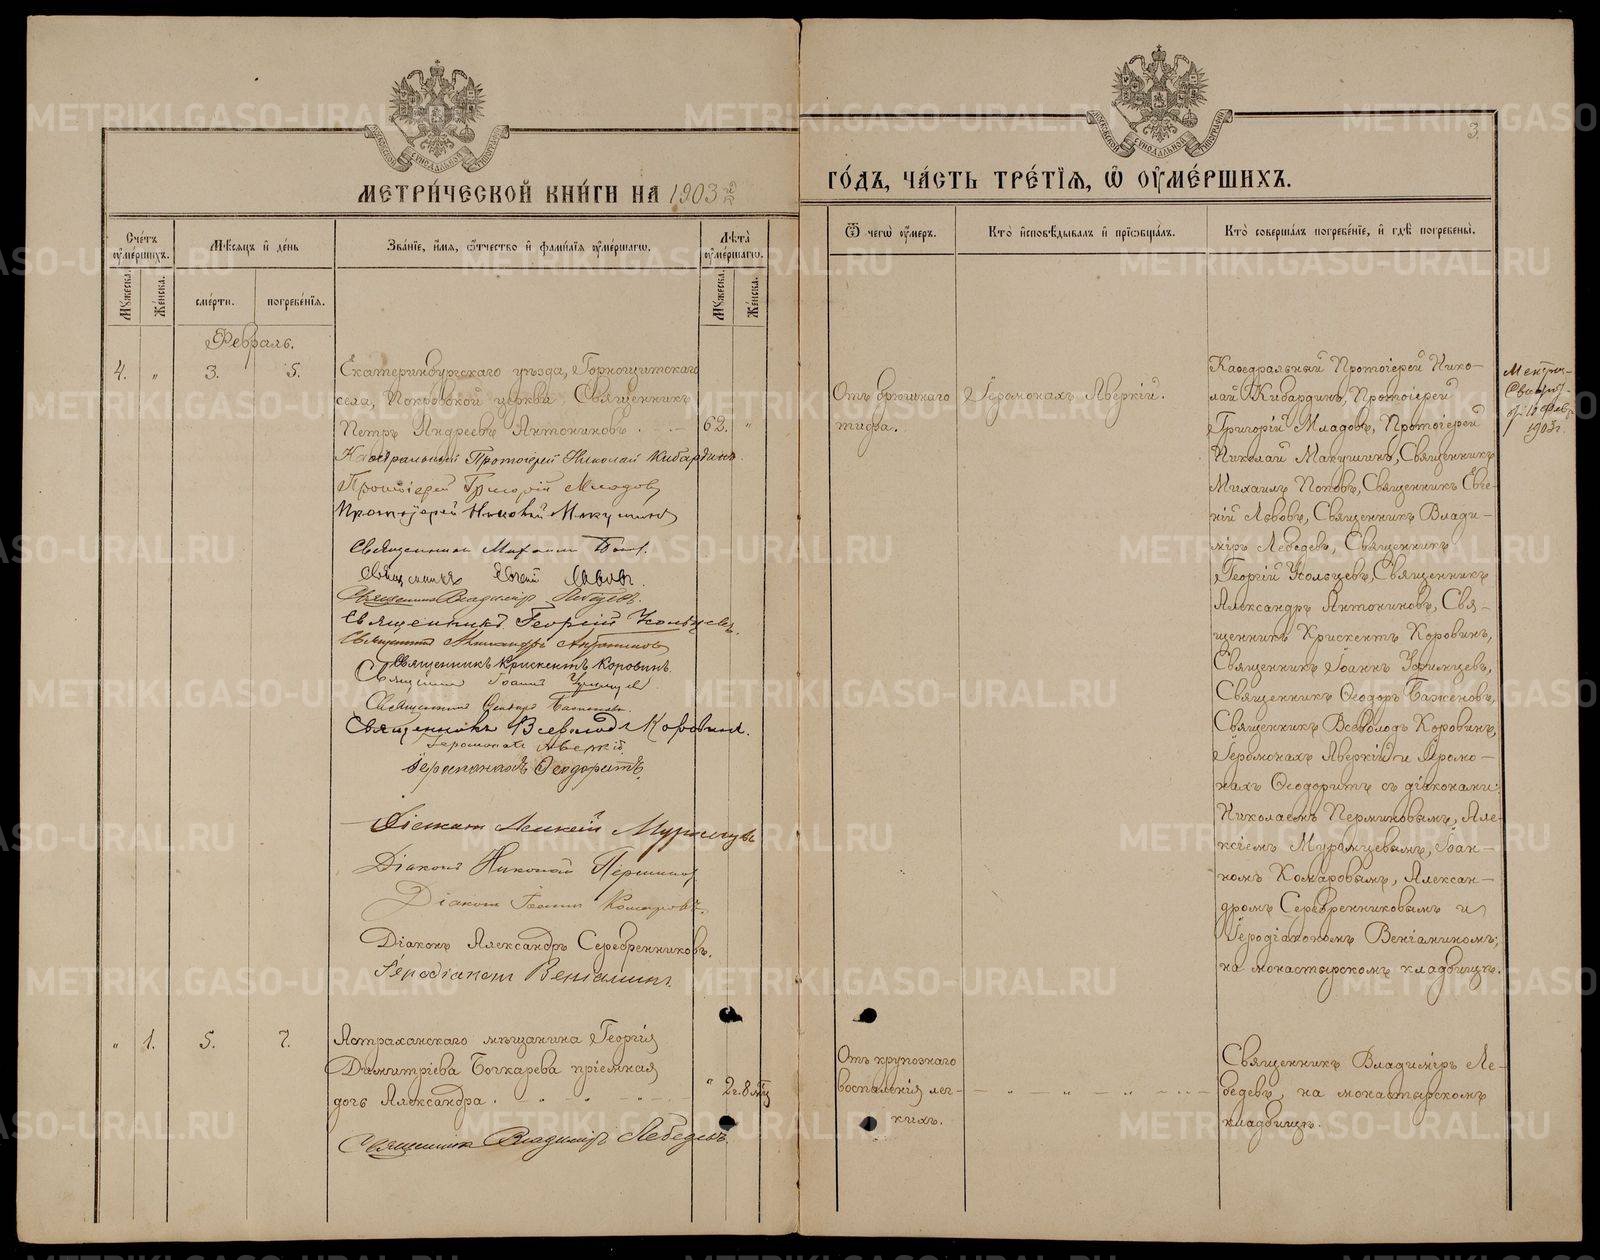 МЕТРИЧЕСКОЙ КНИГИ НА 1903 й
ГОДЪ, ЧАСТЬ ТРЕТІЯ, Ѿ ОУМЕРШИХЪ.
3.
Счетъ оумершихъ.
Мѣсяцъ и день
Званіе, имя, ѿчество и фамилія оумершагѡ.
Лѣта оумершагѡ.
Ѿ чегѡ оумеръ.
Кто исповѣдывалъ и пріѡбщалъ.
Кто совершалъ погребеніе, и гдѣ погребены.
Мужеска.
Женска.
смерти.
погребенія.
Мужеска.
Женска.
Февраль.
4. " 3. 5.
Екатеринбургскаго уѣзда, Горнощитскаго
села, Покровской церкви Священникъ
Петръ Андреевъ Антониновъ. 62. "
Кафедральный Протоіерей Николай Кибардинъ.
Протоіерей Григорій Младовъ
Протоіерей Николай Макушинъ
Священникъ Михаилъ Поповъ.
Священникъ Евгеній Львовъ.
Священникъ Владиміръ Лебедевъ.
Священникъ Георгій Усольцевъ.
Священникъ Александръ Антониновъ
Священникъ Крискентъ Коровинъ.
Священникъ Іоаннъ Уфимцевъ
Священникъ Ѳеодоръ Баженовъ.
Священникъ Всеволодъ Коровинъ.
Іеромонахъ Аверкій.
Іеромонахъ Ѳеодоритъ.
Діаконъ Алексій Мурзинцевъ
Діаконъ Николай Перминовъ
Діаконъ Іоаннъ Комаровъ.
Діаконъ Александръ Серебренниковъ.
Іеродіаконъ Веніаминъ.
Отъ брюшнаго
тифа.
Іеромонахъ Аверкій.
Кафедральный Протоіерей Нико-
лай Кибардинъ, Протоіерей
Григорій Младовъ, Протоіерей
Николай Макушинъ, Священникъ
Михаилъ Поповъ, Священникъ Евге-
ній Львовъ, Священникъ Влади-
міръ Лебедевъ, Священникъ
Георгій Усольцевъ, Священникъ
Александръ Антониновъ, Свя-
щенникъ Крискентъ Коровинъ,
Священникъ Іоаннъ Уфимцевъ,
Священникъ Ѳеодоръ Баженовъ,
Священникъ Всеволодъ Коровинъ,
Іеромонахъ Аверкій и Іеромо-
нахъ Ѳеодоритъ съ діаконами:
Николаемъ Перминовымъ, Але-
ксіемъ Мурзинцевымъ, Іоан-
номъ Комаровымъ, Алексан-
дромъ Серебренниковымъ и
Іеродіакономъ Веніаминомъ;
на монастырскомъ кладбищѣ.
1903 г.
" 1. 5. 7.
Астраханскаго мѣщанина Георгія
Димитріева Бочкарева пріемная
дочь Александра. " 2 г. 8 мц
Священникъ Владиміръ Лебедевъ.
Отъ крупознаго
воспаленія лег-
кихъ.
Священникъ Владиміръ Ле-
бедевъ, на монастырскомъ
кладбищѣ.
METRIKI.GASO-URAL.RU